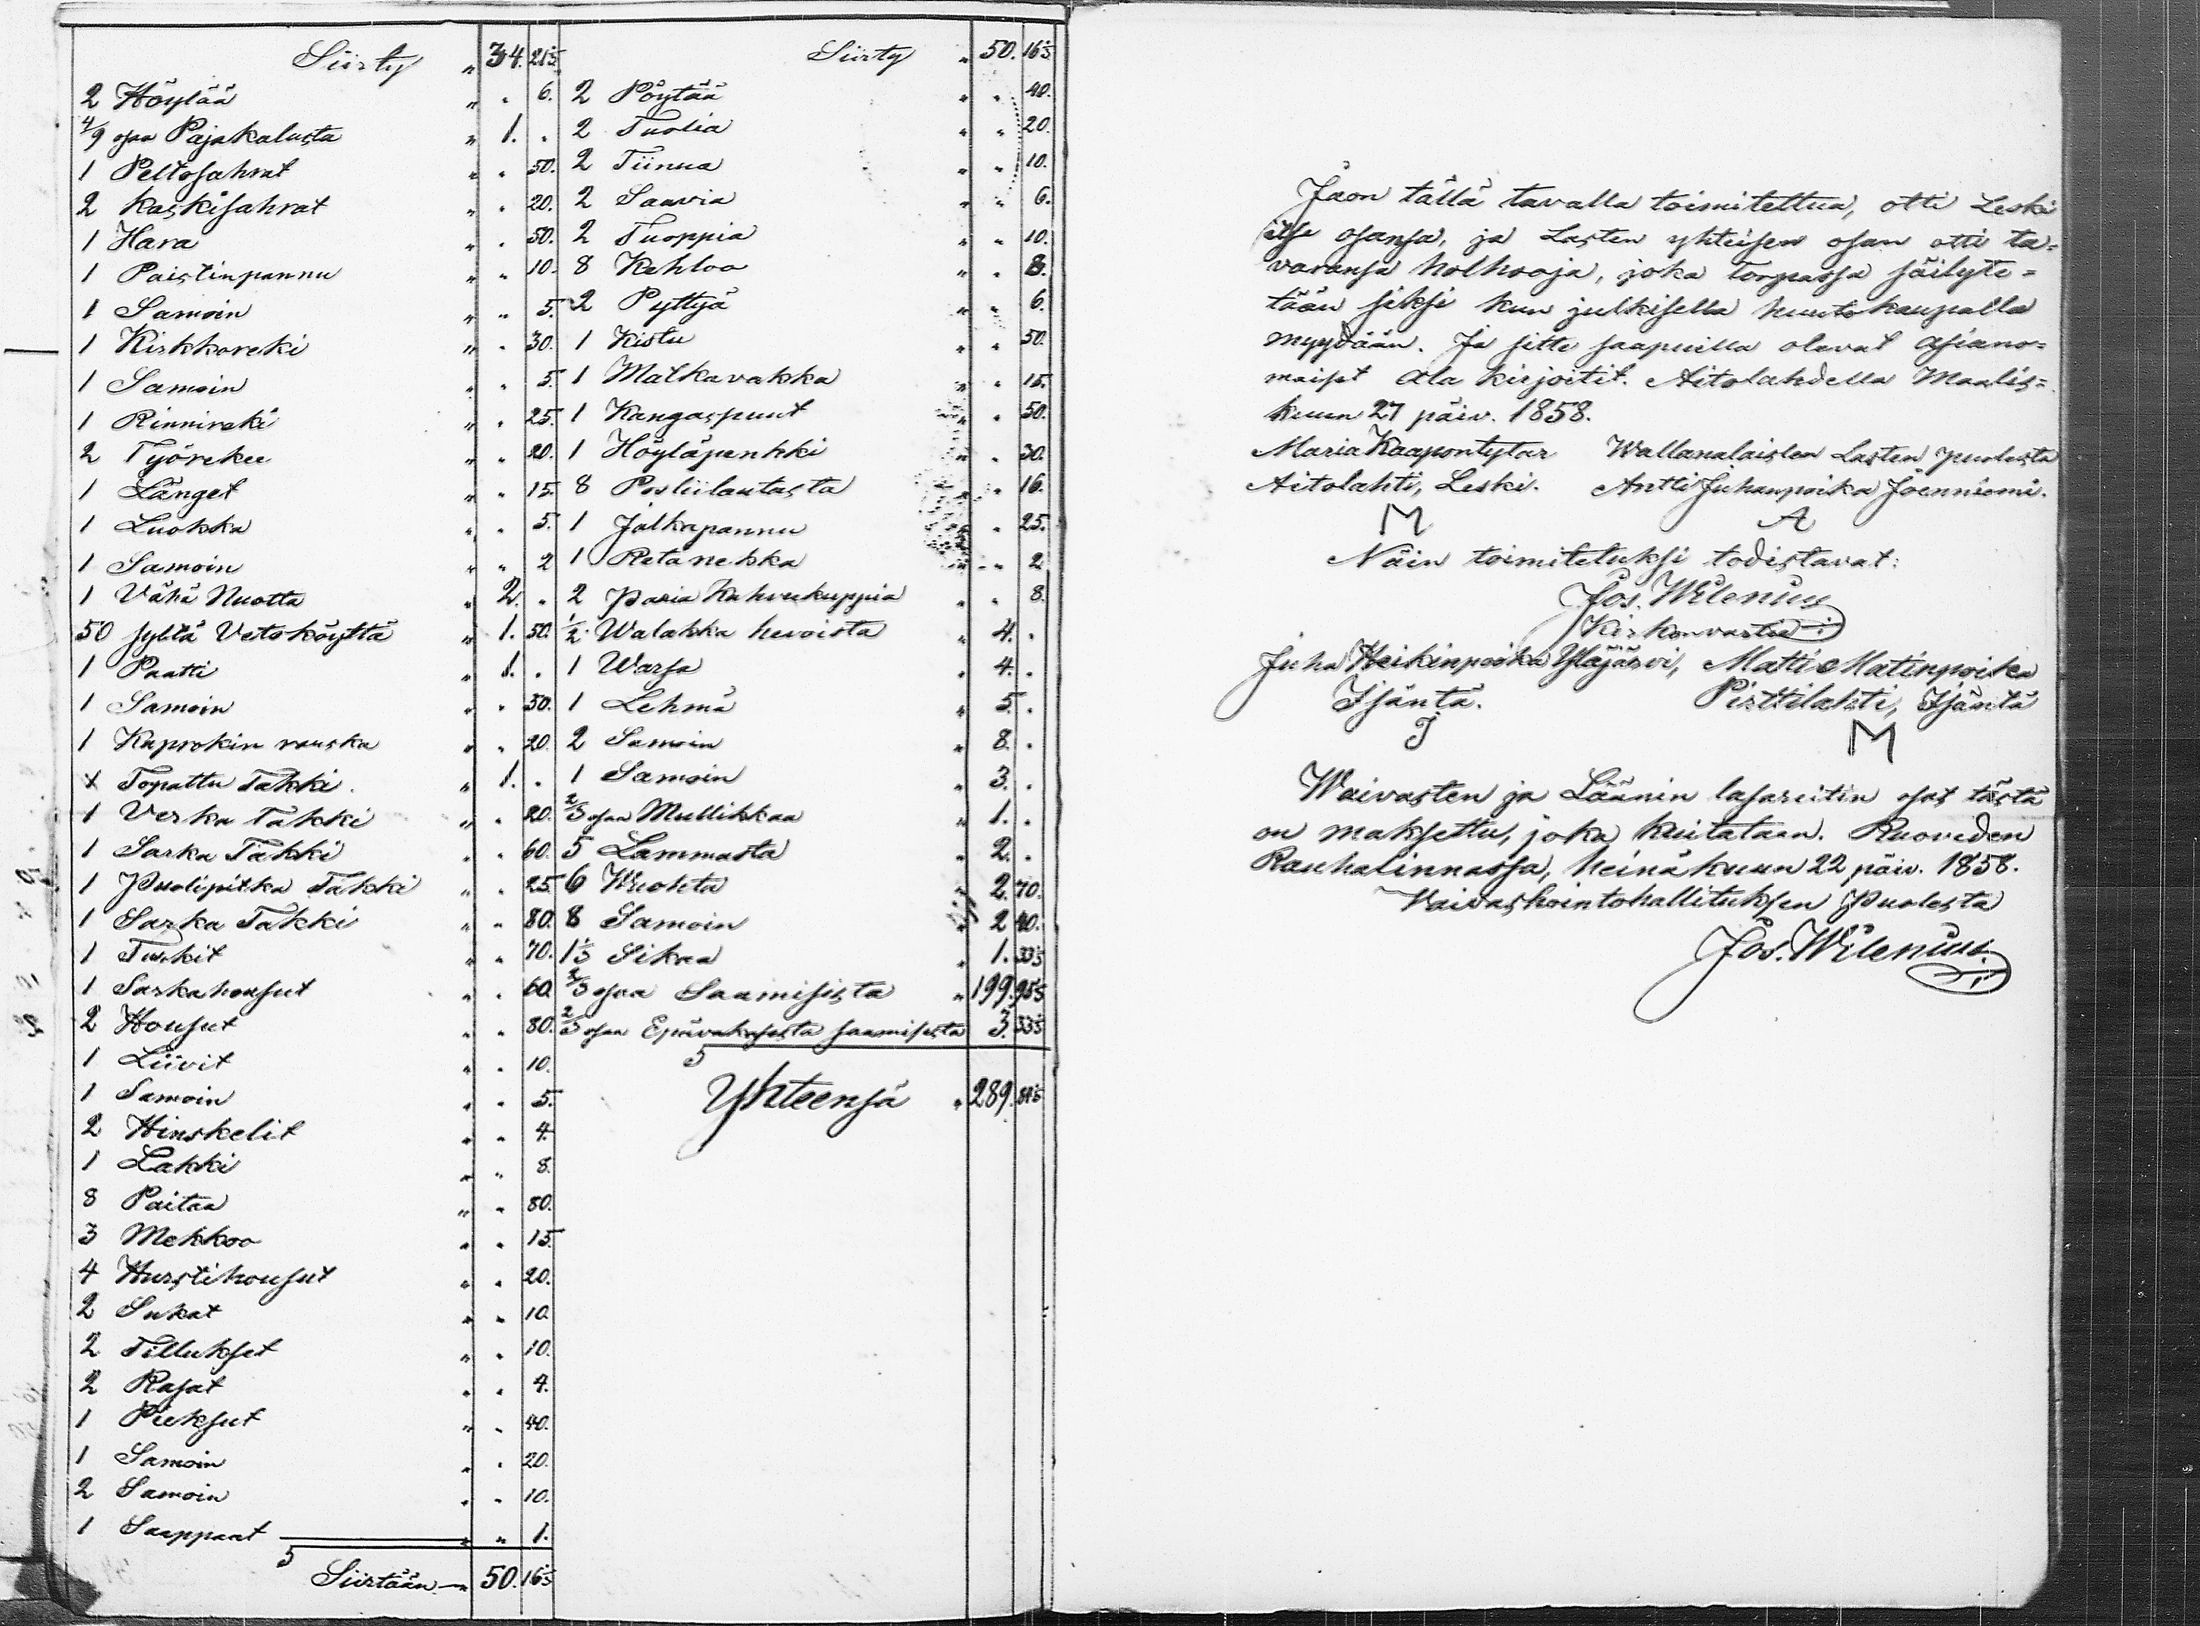 Siirty " 34. 21⅓
2 Höylää " " 6.
4/9 osaa Pajakalusta " 1. "
1 Peltosahrat " " 50.
2 Kaskisahrat " " 20.
1 Hara " " 50.
1 Paistinpannu " " 10.
1 Samoin " " 5.
1 Kirkkoreki " " 30.
1 Samoin " " 5.
1 Rinnireki " " 25.
2 Työrekee " " 20.
1 Länget " " 15.
1 Luokka " " 5.
1 Samoin " " 2
1 Vähä Nuotta " 2. "
50 syltä Vetoköyttä " 1. 50.
1 Paatti " 1. "
1 Samoin " " 50.
1 Kaprokin rauska " " 20.
1 Topattu Takki. " 1. "
1 Verka Takki " " 20.
1 Sarka Takki " " 60.
1 Puolipitka Takki " " 25.
1 Sarka Takki " " 80.
1 Turkit " " 70.
1 Sarkahousut " " 60.
2 Housut " " 80.
1 Liivit " " 10.
1 Samoin " " 5.
2 Hinskelit " " 4.
1 Lakki " " 8.
8 Paitaa " " 80.
3 Mekkoo " " 15.
4 Hurstihousut " " 20.
2 Sukat " " 10.
2 Tillukset " " 10.
2 Rasat " " 4.
1 Pieksut " " 40.
1 Samoin " " 20.
2 Samoin " " 10.
1 Saappaat " " 1.
Siirtään " 50. 16⅓
Siirty " 50. 16⅓
2 Pöytää " " 40.
2 Tuolia " " 20.
2 Tiinua " " 10.
2 Saavia " " 6.
2 Tuoppia " " 10.
8 Kehloo " " 8.
2 Pyttyä " " 6.
1 Kistu " " 50.
1 Matkavakka " " 15.
1 Kangaspuut " " 50.
1 Höyläpenkki " " 30.
8 Posliilautasta " " 16.
1 Jalkapannu " " 25.
1 Retanehka " " 2
2 Paria Kahvekuppia " " 8.
½ Walakka hevoista " 4. "
1 Warsa " 4. "
1 Lehmä " 5. "
2 Samoin " 8. "
1 Samoin " 3. "
2/3 osaa Mullikkaa " 1. "
5 Lammasta " 2. "
6 Wuohta " 2. 70.
8 Samoin " 2 40.
1⅓ Sikaa " 1. 33⅓
2/3 osaa Saamisista " 199. 95⅓
2/3 osaa Epävakasesta saamisesta 3. 33⅓
Yhteensä " 289. 81⅓
Jaon tällä tavalla toimitettua, otti Leski
itse osansa, ja Lasten yhteisen osan otti ta=
varansa holhooja, joka torpassa säilyte=
tään siksi kun julkisella huutokaupalla
myydään. Ja sitte saapuilla olevat asiano=
maiset ala kirjoitit. Aitolahdella Maalis=
kuun 27 päiv. 1858.
Maria Kaapontytar Wallanalaisten Lasten puolesta
Aitolahti, Leski. Antti Juhanpoika Joenniemi.
M A
Näin toimitetuksi todistavat:
Jos. Wilenius
Kirkonvartia
Juha Heikinpoika Yläjärvi, Matti Matinpoika
Isäntä. Pirttilahti, Isäntä
J M
Waivasten ja Läänin lasareitin osat tästä
on maksettu, joka kuitataan. Ruoveden
Rauhalinnassa, heinäkuun 22 päiv. 1858.
Vaivashointohallituksen Puolesta
Jos. Wilenius.